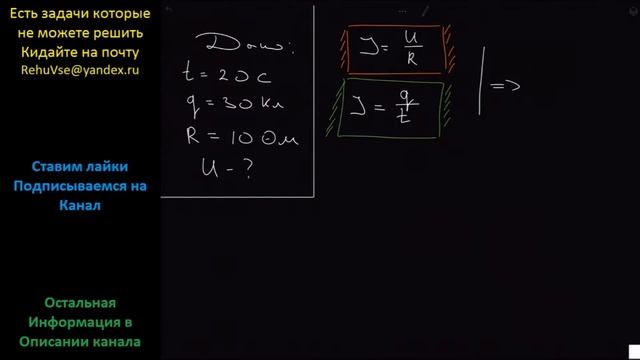 Есть задачи которые
не можете решить
Кидайте на почту
RehuVse@yandex.ru
Ставим лайки
Подписываемся на
Канал
Остальная
Информация в
Описании канала
Дано:
t = 20 с
q = 30 Кл
R = 10 Ом
U - ?
I = U/R
I = q/t
=>